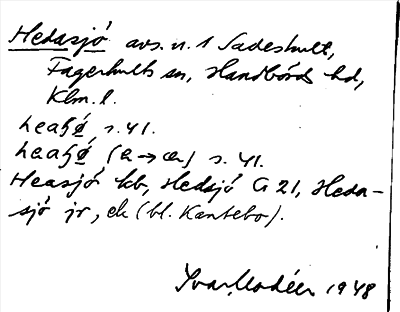 Hedasjö avs. u. 1 Sadeshult,
Fagerhults sn, Handbörds hd,
Klm. l.
heaʃö̱, s. 41.
heaʃö̱ (a→æ) s. 41.
Heasjö kb, Hedsjö G 21, Heda-
sjö jr, ek (bl. Kantebo).
Ivar Modéer 1948